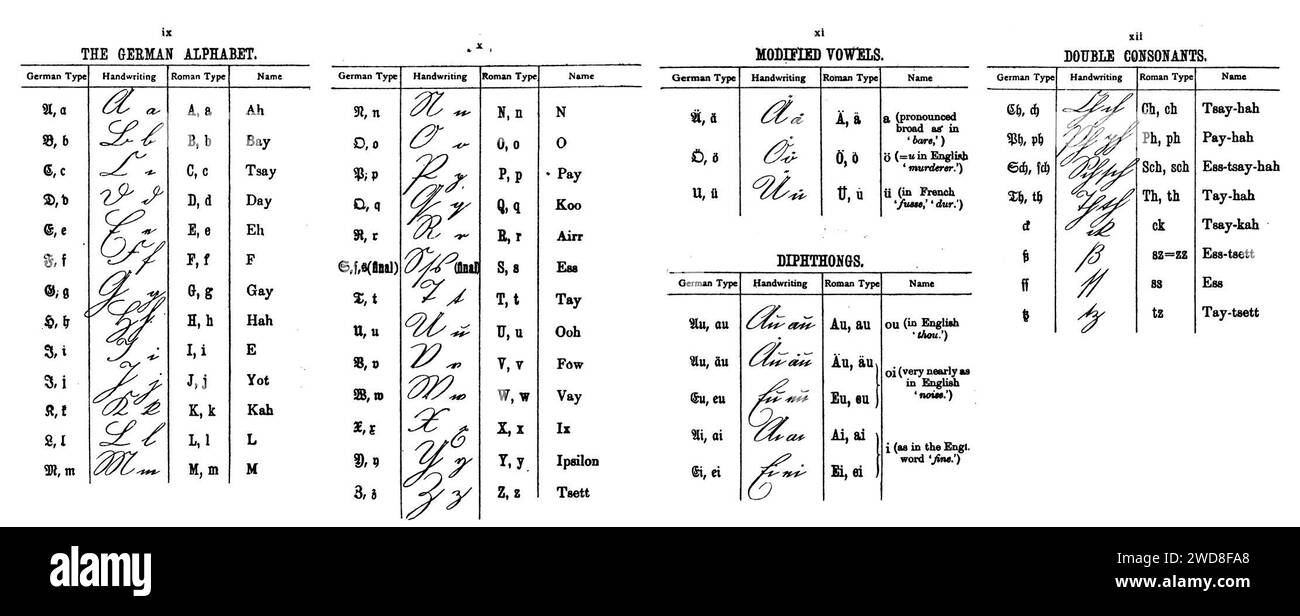 ix
THE GERMAN ALPHABET.
German Type Handwriting Roman Type Name
A, a A a A, a Ah
B, b B b B, b Bay
C, c C c C, c Tsay
D, d D d D, d Day
E, e E e E, e Eh
F, f F f F, f F
G, g G g G, g Gay
H, h H h H, h Hah
I, i I i I, i E
J, j J j J, j Yot
K, k K k K, k Kah
L, l L l L, l L
M, m M m M, m M
x
German Type Handwriting Roman Type Name
N, n N n N, n N
O, o O o O, o O
P, p P p P, p Pay
Q, q Q q Q, q Koo
R, r R r R, r Airr
S, ſ, s (final) S ſ s (final) S, s Ess
T, t T t T, t Tay
U, u U u U, u Ooh
V, v V v V, v Fow
W, w W w W, w Vay
X, x X x X, x Ix
Y, y Y y Y, y Ipsilon
Z, z Z z Z, z Tsett
xi
MODIFIED VOWELS.
German Type Handwriting Roman Type Name
Ä, ä Ä ä Ä, ä a (pronounced
broad as in
'bare,')
Ö, ö Ö ö Ö, ö ö (=u in English
'murderer.')
U, ü Ü ü Ü, ü ü (in French
'fusse,' 'dur.')
DIPHTHONGS.
German Type Handwriting Roman Type Name
Au, au Au au Au, au ou (in English
'thou.')
Äu, äu Äu äu Äu, äu oi (very nearly as
in English
'noise.')
Eu, eu Eu eu Eu, eu
Ai, ai Ai ai Ai, ai i (as in the Engl.
word 'fine.')
Ei, ei Ei ei Ei, ei
xii
DOUBLE CONSONANTS.
German Type Handwriting Roman Type Name
Ch, ch Ch ch Ch, ch Tsay-hah
Ph, ph Ph ph Ph, ph Pay-hah
Sch, ſch Sch sch Sch, sch Ess-tsay-hah
Th, th Th th Th, th Tay-hah
ck ck ck Tsay-kah
ß ß sz=zz Ess-tsett
ſſ ſſ ss Ess
tz tz tz Tay-tsett
alamy
Image ID: 2WD8FA8
www.alamy.com